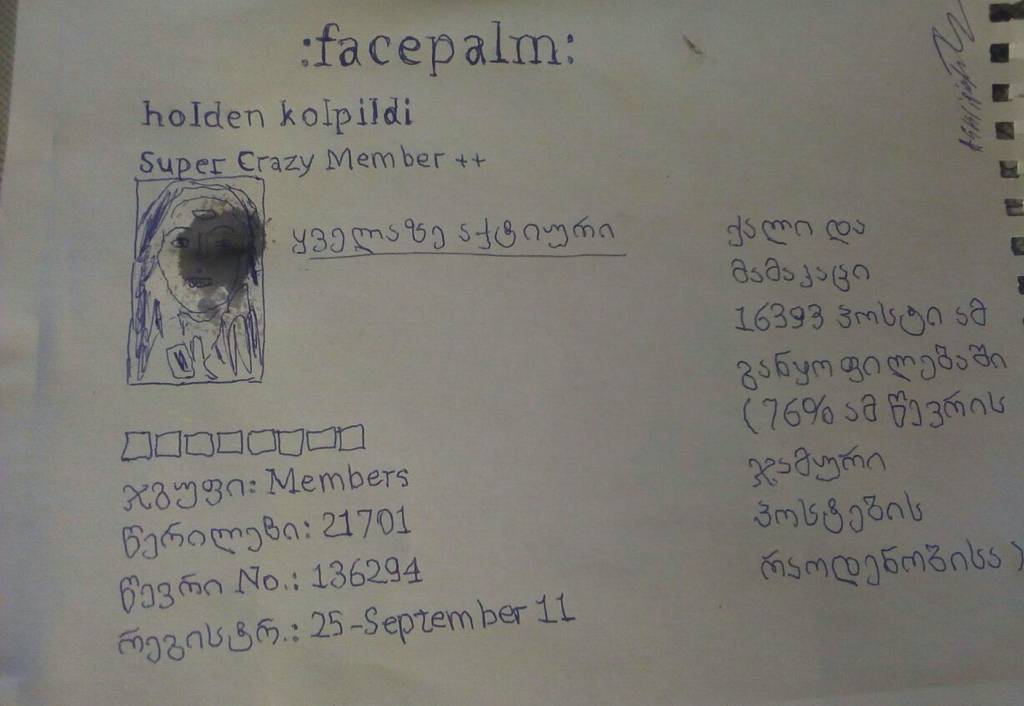 :facepalm:
holden kolpildi
Super Crazy Member ++
ყველაზე აქტიური
ქალი და
მამაკაცი
16393 პოსტი ამ
განყოფილებაში
(76% ამ წევრის
ჯამური
პოსტების
რაოდენობისა)
ჯგუფი: Members
წერილები: 21701
წევრი No.: 136294
რეგისტრ.: 25-September 11